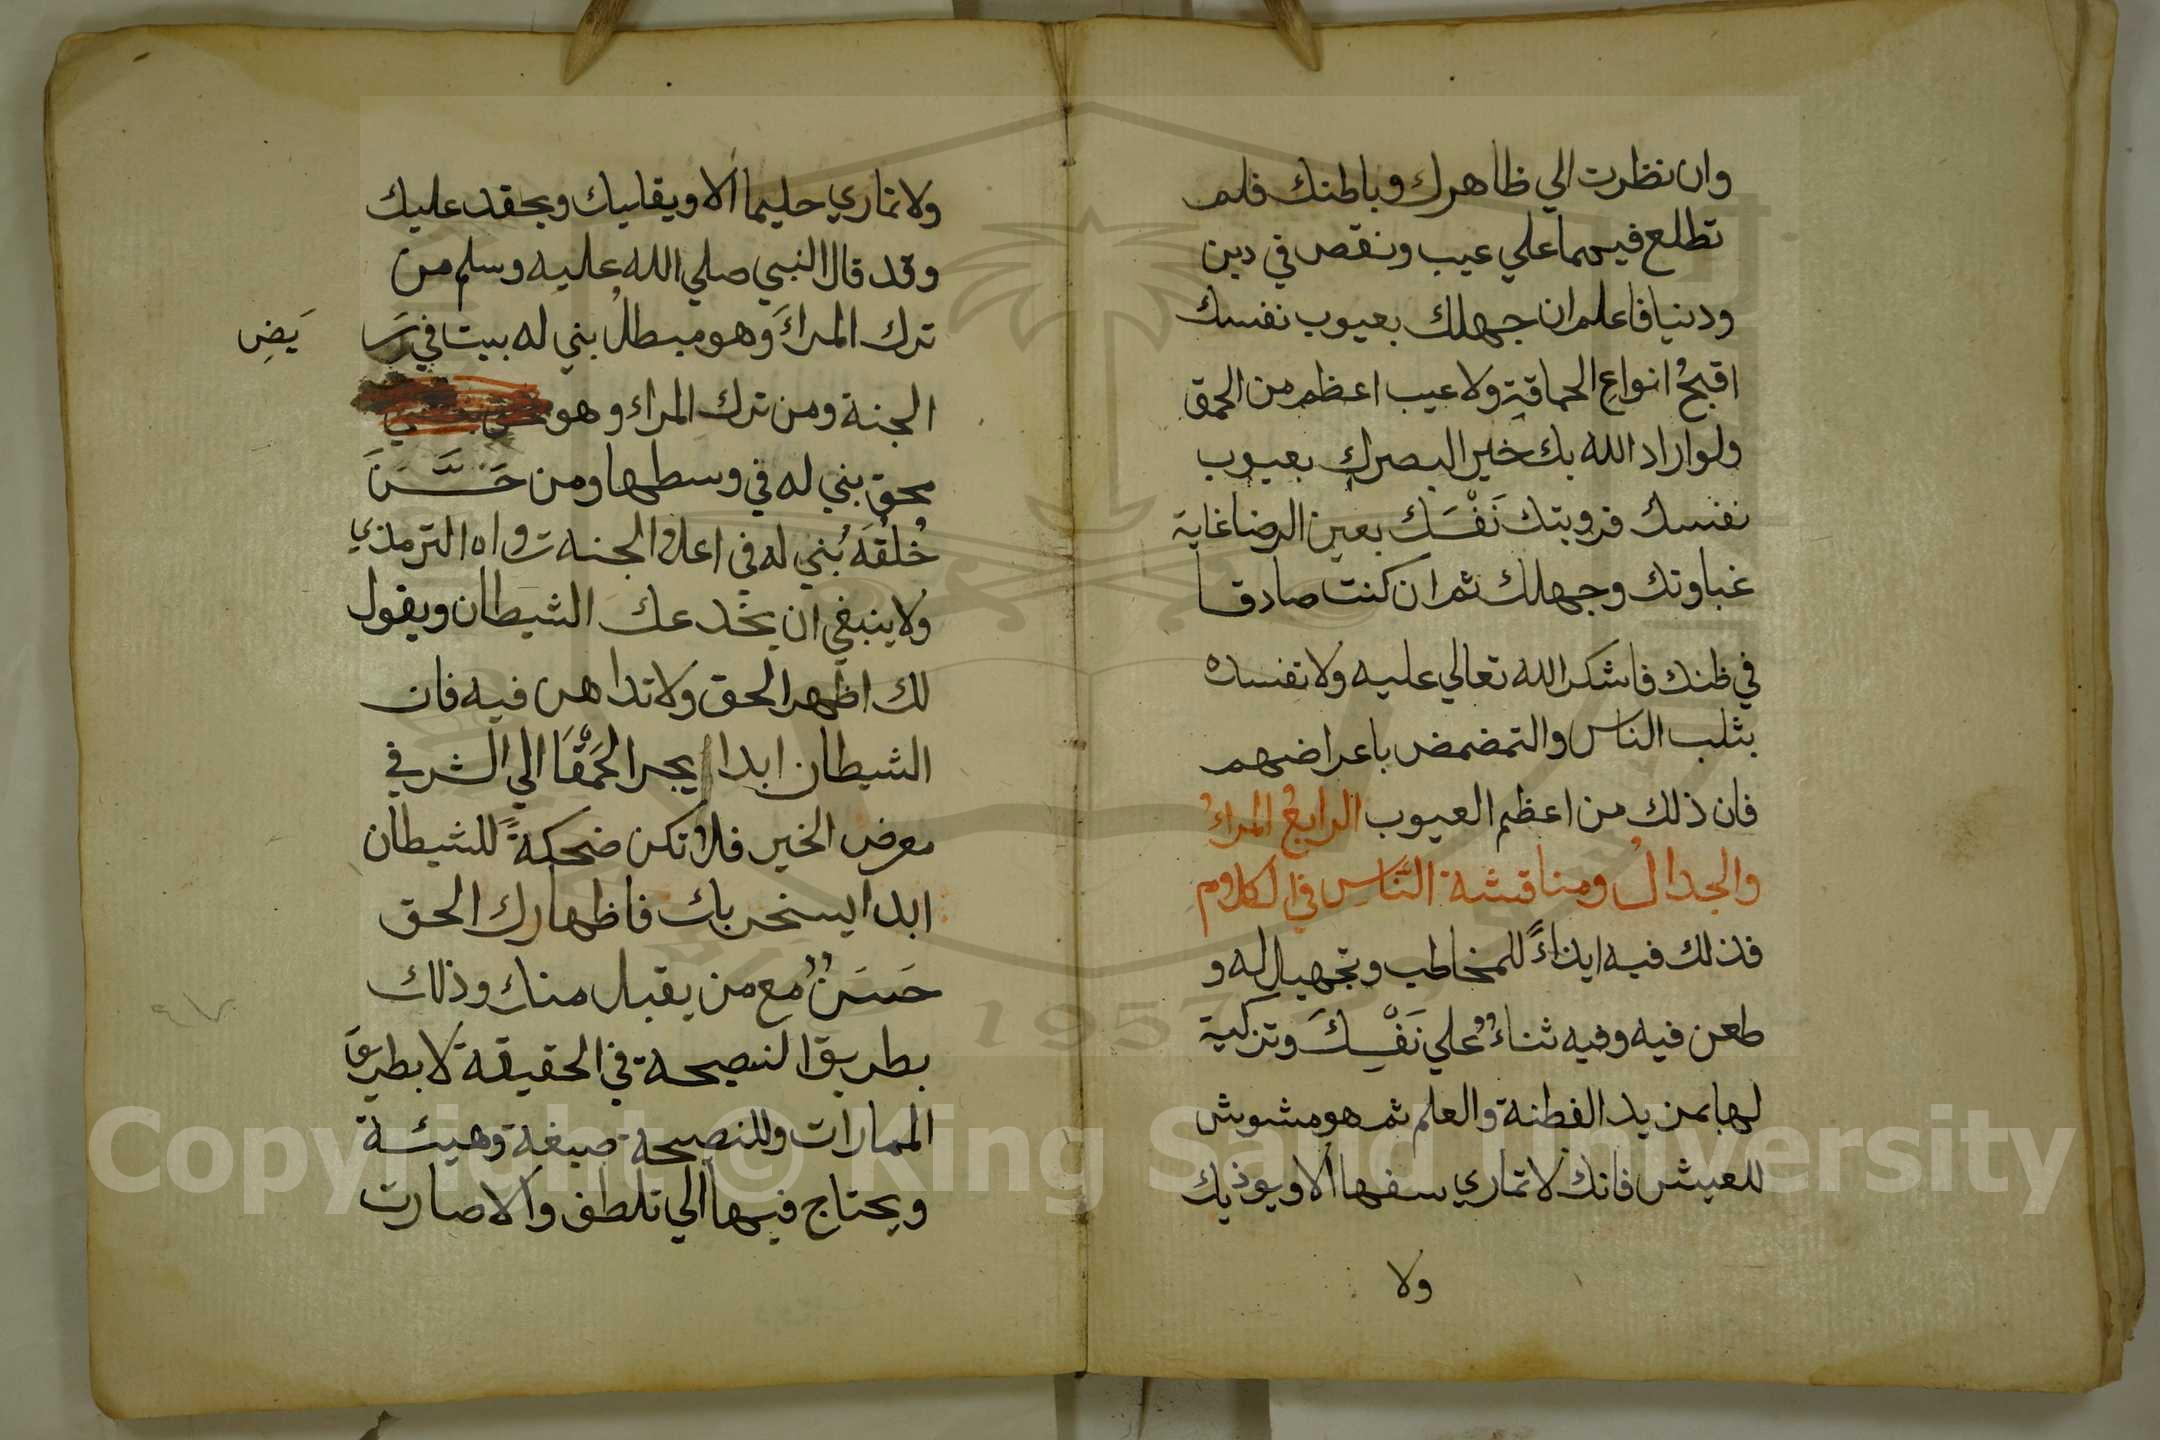 وان نظرت الي ظاهرك وباطنك فلم
تطلع فيهما علي عيب ونقص في دين
ودنيا فاعلم ان جهلك بعيوب نفسك
اقبحُ انواعِ الحماقةِ ولا عيب اعظم من الحمق
ولو اراد الله بك خيرا لبصرك بعيوب
نفسك فرويتك نَفْسَك بعين الرضا غاية
غباوتك وجهلك ثم ان كنت صادقا
في ظنك فاشكر الله تعالي عليه ولا تفسده
بثلب الناس والتمضمض باعراضهم
فان ذلك من اعظم العيوب الرابعُ المراءُ
والجدالُ ومناقشة النَّاسِ في الكلام
فذلك فيه ايذاءً للمخاطب وتجهيل له و
طعن فيه وفيه ثناءٌ علي نَفْسِكَ وتزكية
لها بمزيد الفطنة والعلم ثم هو مشوش
للعيش فانك لا تماري سفيها الا ويوذيك
ولا
ولا تماري حليما الا ويقليك ويحقد عليك
وقد قال النبي صلي الله عليه وسلم من
ترك المراءَ وهو مبطلُ بني له بيت في رَ
يَضِ
الجنة ومن ترك المراء وهو
محق بني له في وسطها ومن حَسَّنَ
خُلُقَهُ بُني له في اعلا الجنة رواه الترمذي
ولا ينبغي ان يخدعك الشيطان ويقول
لك اظهر الحق ولا تداهن فيه فان
الشيطان ابدا يجر الحَمْقَا الي الشر في
معرض الخير فلا تكن ضحكةً للشيطان
ابدا يسخر بك فاظهارك الحق
حَسَنٌ مع من يقبل منك وذلك
بطريق النصيحة في الحقيقة لا بطريق
الممارات وللنصيحة صيغة وهيئة
ويحتاج فيها الي تلطف والا صارت
1957
Copyright © King Saud University